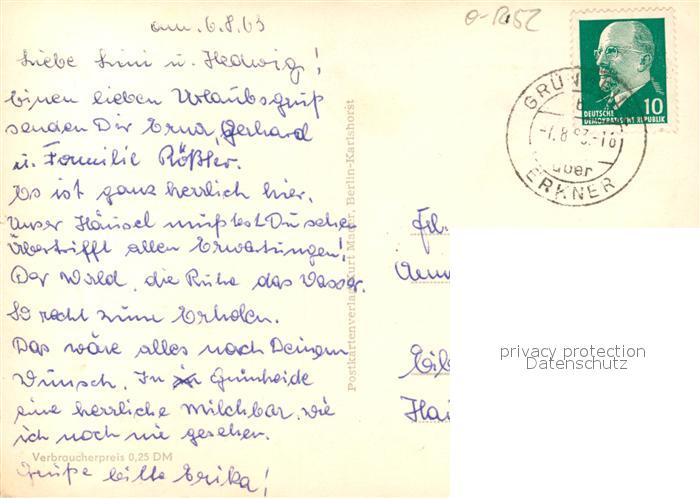 am. 6.8.63
Liebe Lini u. Hedwig!
Einen lieben Urlaubsgruß
senden Dir Erna, Gerhard
u. Familie Rößler.
Es ist ganz herrlich hier.
Unser Häusel mußtest Du sehen
Übertrifft allen Erwartungen!
Der Wald, die Ruhe das Wasser.
So recht zum Erholen.
Das wäre alles nach Deinem
Wunsch. In Grünheide
eine herrliche Milchbar, wie
ich noch nie gesehen.
Grüße bitte Erika!
Verbraucherpreis 0,25 DM
Postkartenverlag Kurt Berlin-Karlshorst
10
DEUTSCHE
DEMOKRATISCHE REPUBLIK
über
ERKNER
privacy protection
Datenschutz